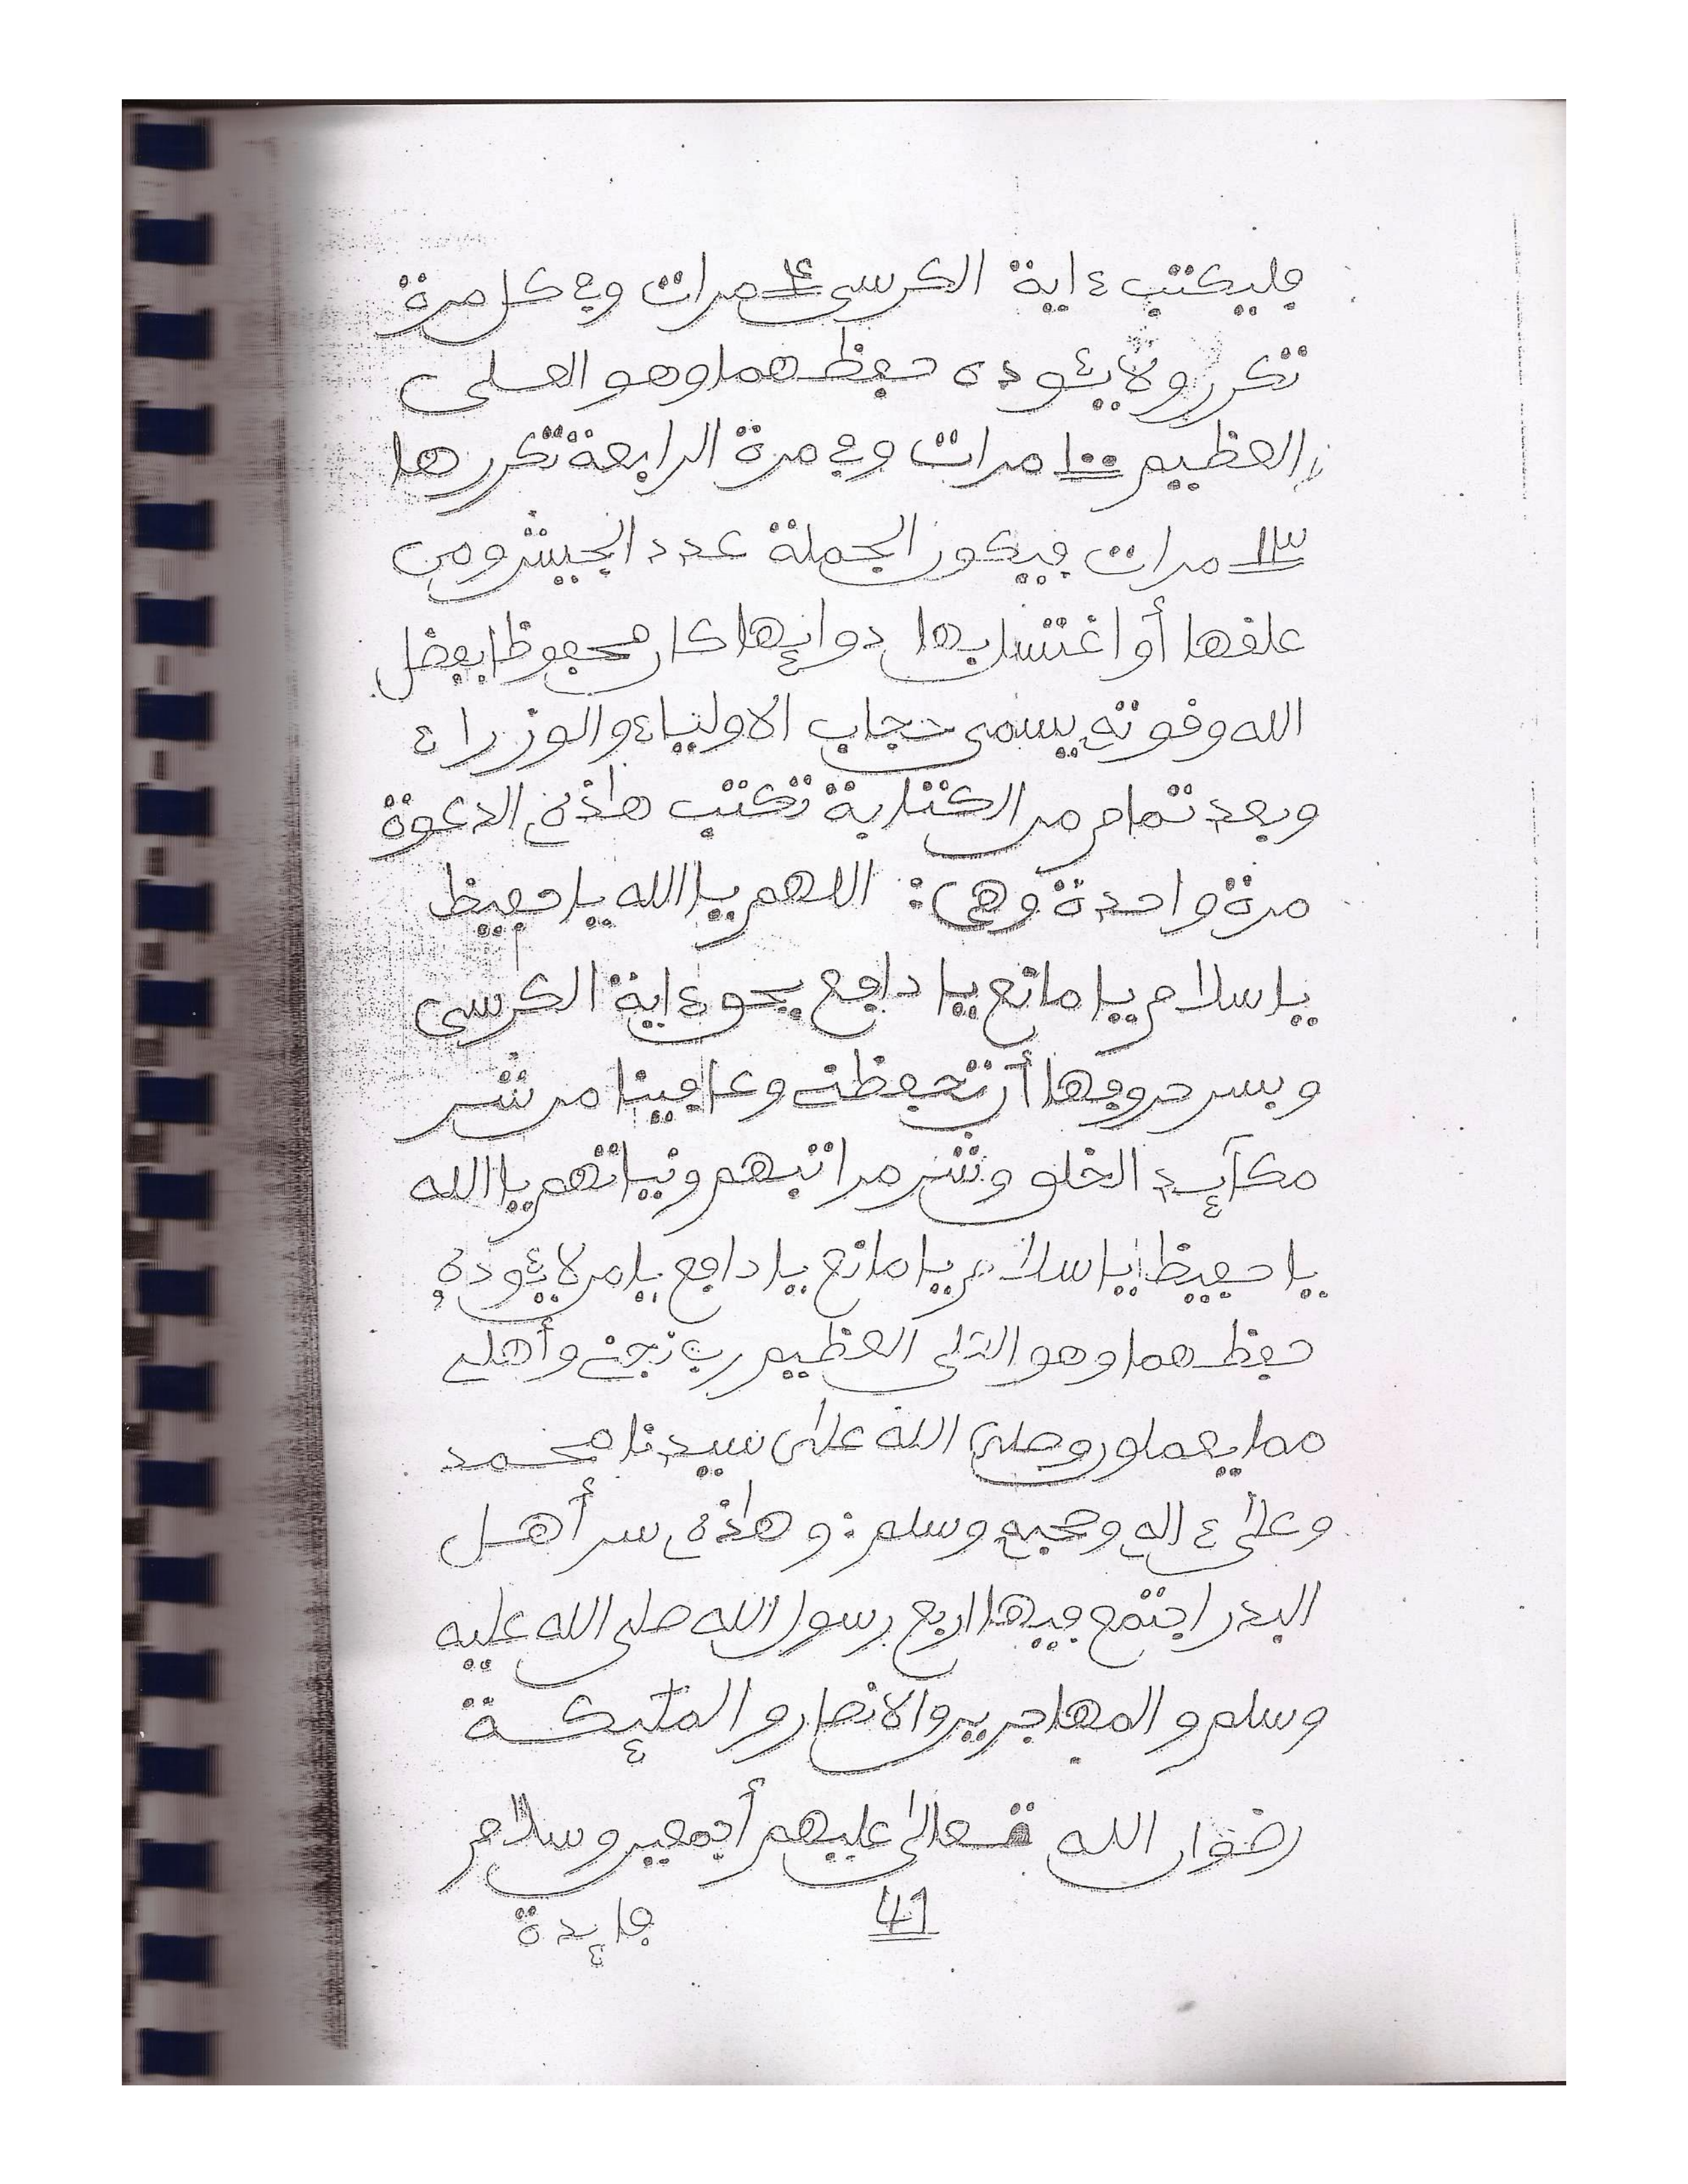 فليكتب ءاية الكرسى ٤ مرات وفي كل مرة
تكرر ولا يئوده حفظهما وهو العلى
العظيم ١٠٠ مرات وفي مرة الرابعة تكررها
١٣ مرات فيكون الجملة عدد الجيش ومن
علقها أو اغتسل بها دوابها كان محفوظا بفضل
الله وقوته يسمى حجاب الاولياء والوزراء
وبعد تمام من الكتابة تكتب هاذه الدعوة
مرة واحدة وهى: اللهم يا الله يا حفيظ
يا سلام يا مانع يا دافع بحق ءاية الكرسى
وبسر حروفها أن تحفظنى وعافينا من شر
مكآيد الخلق وشر مراتبهم ونياتهم يا الله
يا حفيظ يا سلام يا مانع يا دافع يا من لا يئوده
حفظهما وهو العلى العظيم رب نجنى وأهلى
مما يعملون وصلى الله على سيدنا محمد
وعلى ءاله وصحبه وسلم: وهاذه سر أهل
البدر اجتمع فيها اربع رسول الله صلى الله عليه
وسلم و المهاجرين والانصار و الملئكة
رضوان الله تعالى عليهم أجمعين وسلام
41 فايدة